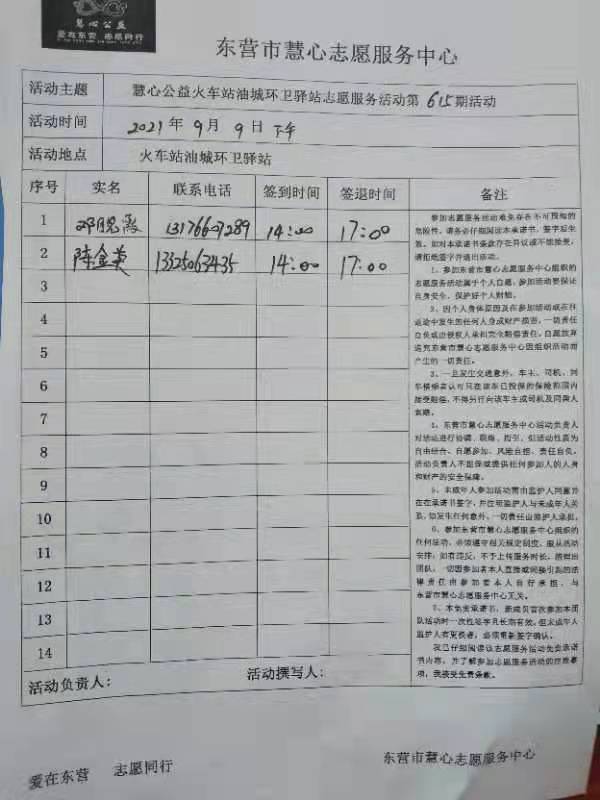 慧心公益
爱在东营 志愿同行
东营市慧心志愿服务中心
活动主题 慧心公益火车站油城环卫驿站志愿服务活动第615期活动
活动时间 2021年9月9日下午
活动地点 火车站油城环卫驿站
序号 实名 联系电话 签到时间 签退时间 备注
1 13176607289 14:00 17:00
2 陈金英 13325063435 14:00 17:00
3
4
5
6
7
8
9
10
11
12
13
14
参加志愿服务活动难免存在不可预知的
危险性，请务必仔细阅读本承诺书，签字后生
效。如对本承诺书条款存在异议或不能接受，
请拒绝签字并退出活动。
1、参加东营市慧心志愿服务中心组织的
志愿服务活动属于个人自愿，参加活动要保证
自身安全，保护好个人财物。
2、因个人身体原因及在参加活动或在往
返途中发生的任何人身或财产损害，一切责任
自负或由侵权人承担完全赔偿责任，自愿放弃
追究东营市慧心志愿服务中心因组织活动而
产生的一切责任。
3、一旦发生交通意外，车主、司机、同
车横够者认可只在该车已投保的保险范围内
接受赔偿，不得另行向该车主或司机及同乘人
索赔。
4、东营市慧心志愿服务中心活动负责人
对活动进行协调、联络、指引，但活动性质为
自由结合、自愿参加、风险自担、责任自负，
活动负责人不担保或提供任何参加人的人身
和财产的安全保障。
5、未成年人参加活动需由监护人同意并
在在承诺书签字，并注明监护人与未成年人关
系，如发生任何意外，一切责任由监护人承担。
6、参加东营市慧心志愿服务中心组织的
任何活动，必须遵守相关规定制度，服从活动
安排，如有违反，不予上传服务时长，清理出
团队，一切因参加者本人直接或间接引起的法
律责任由参加者本人自行承担，与
东营市慧心志愿服务中心无关。
7、本免责承诺书，新成员首次参加本团
队活动时一次性签字凡长期有效，但未成年人
监护人有更换者，必须重新签字确认。
我已仔细阅读该志愿服务活动免责承诺
书内容，并了解参加志愿服务活动的注意事
项，我接受免责条款。
活动负责人： 活动撰写人：
爱在东营 志愿同行 东营市慧心志愿服务中心